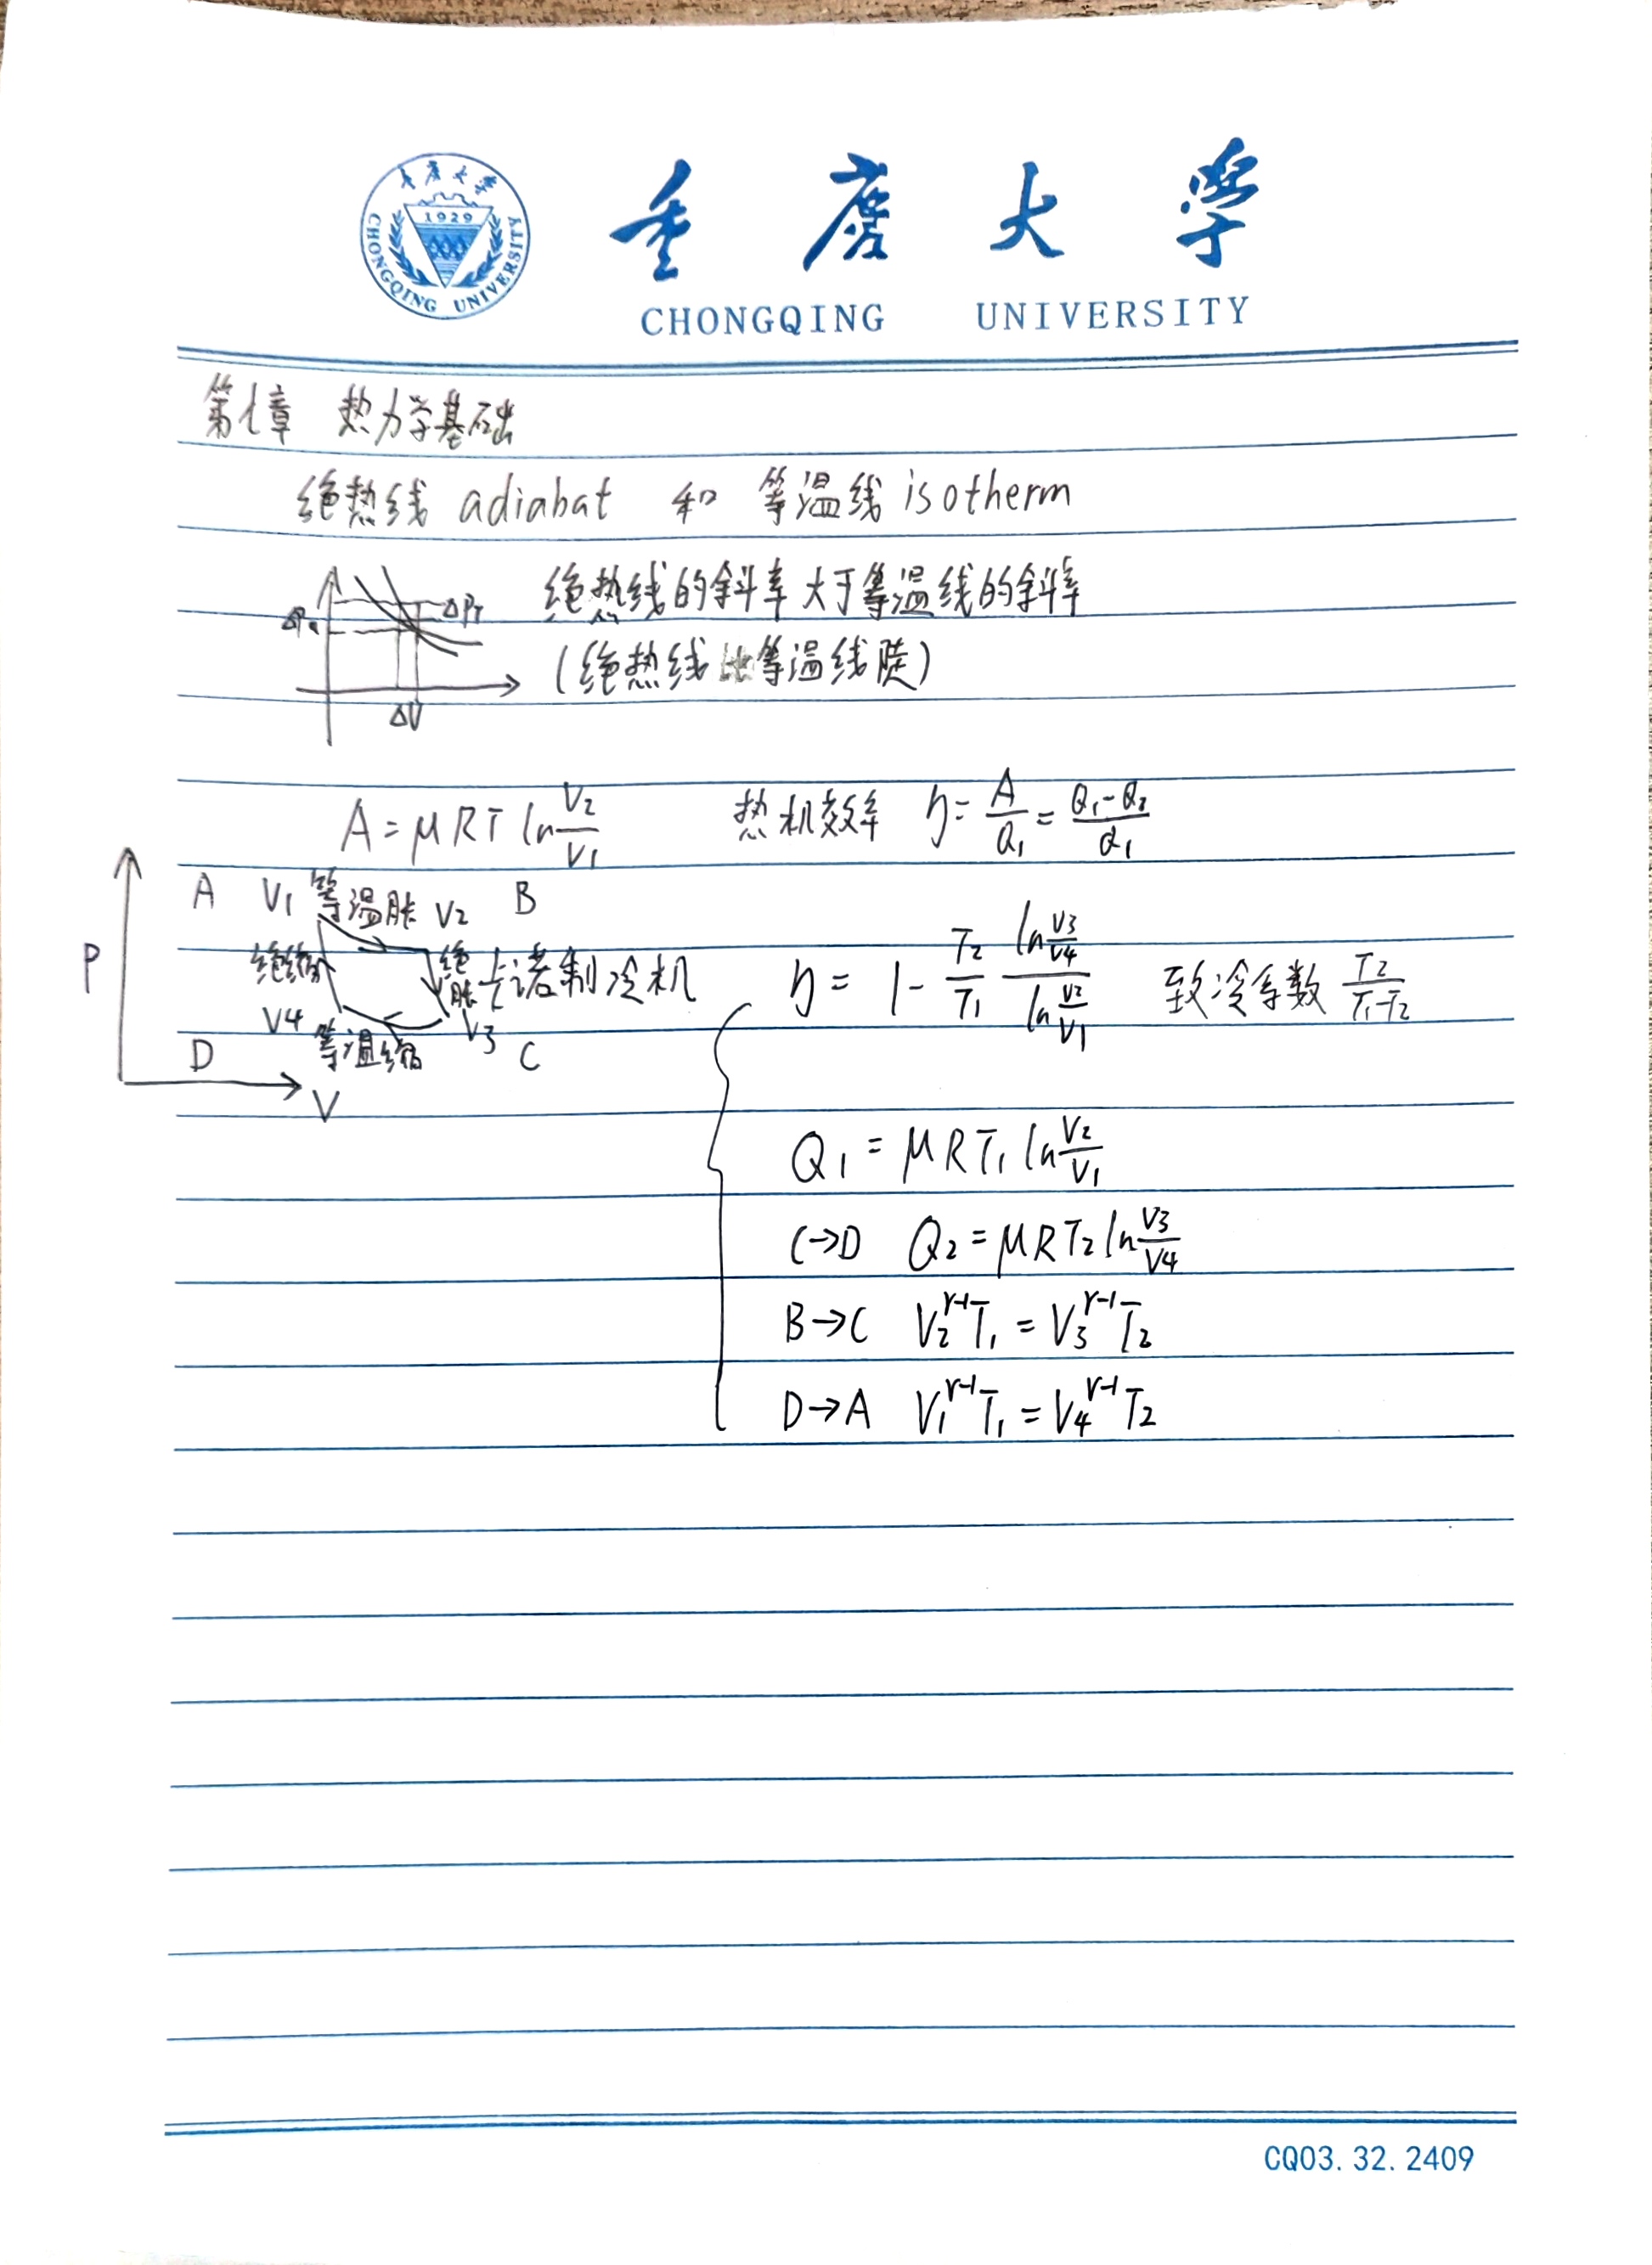 重庆大学
1929
CHONGQING UNIVERSITY
重庆大学
CHONGQING UNIVERSITY
第七章 热力学基础
绝热线 adiabat 和 等温线 isotherm
ΔPa ΔPT 绝热线的斜率大于等温线的斜率
(绝热线比等温线陡)
ΔV
A = μRT ln V2/V1 热机效率 η = A/Q1 = (Q1-Q2)/Q1
A V1 等温胀 V2 B
P 绝缩 绝胀 卡诺制冷机 η = 1 - T2/T1 (ln V3/V4)/(ln V2/V1) 致冷系数 T2/(T1-T2)
V4 等温缩 V3
D C
V
Q1 = μRT1 ln V2/V1
C→D Q2 = μRT2 ln V3/V4
B→C V2^(γ-1) T1 = V3^(γ-1) T2
D→A V1^(γ-1) T1 = V4^(γ-1) T2
CQ03.32.2409